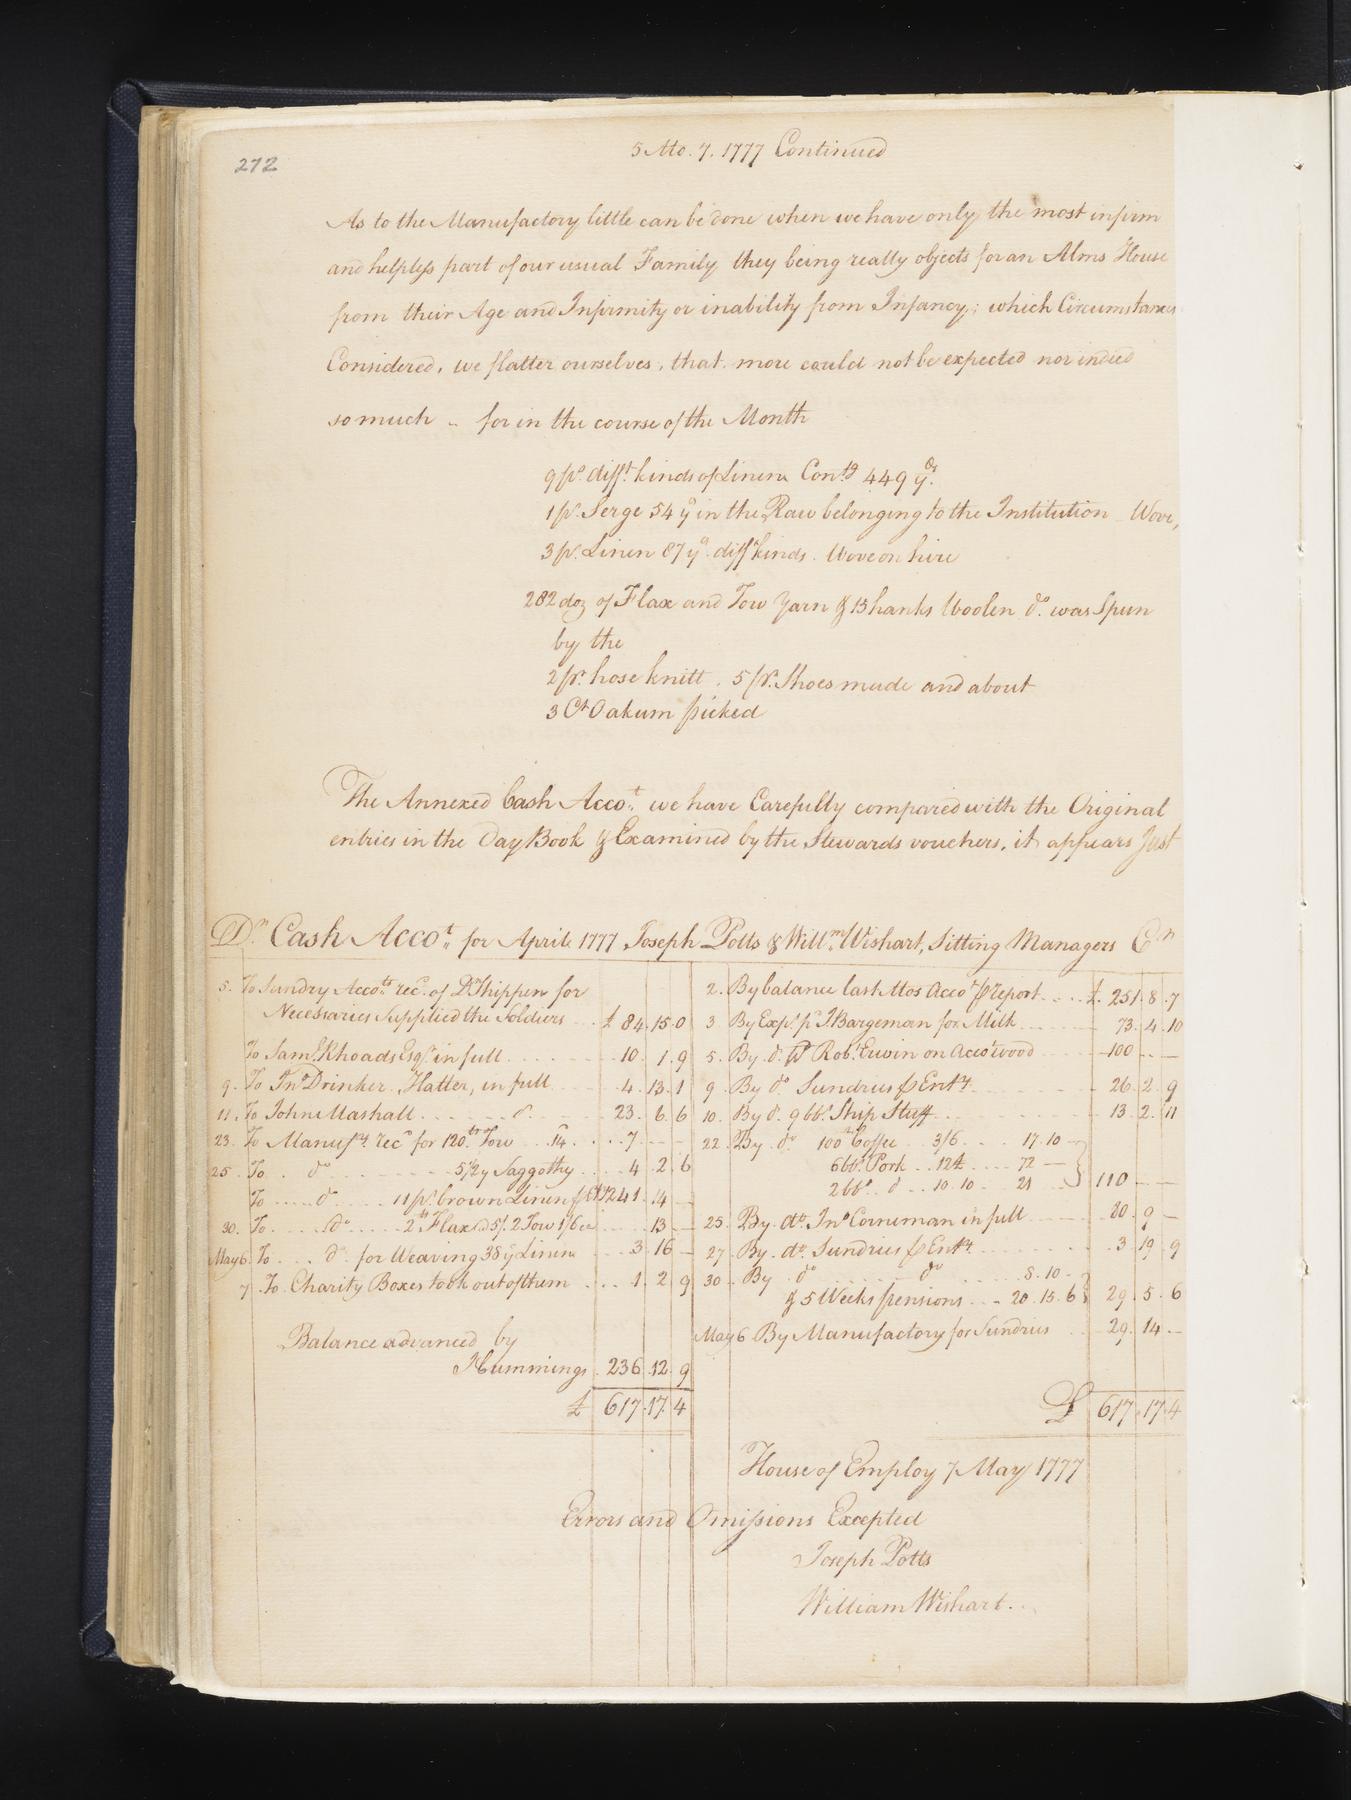 272
5 Mo. 7. 1777 Continued
As to the Manufactory little can be done when we have only the most infirm
and helpless part of our usual Family they being really objects for an Alms House
from their Age and Infirmity or inability from Infancy; which Circumstances
Considered, we flatter ourselves, that more could not be expected nor indeed
so much - for in the course of the Month
9 ps. difft. kinds of Linen Contg. 449 yds.
1 ps. Serge 54 yd in the Raw belonging to the Institution - Wove,
3 ps. Linen 87 yd. difft kinds. Wove on hire
282 doz of Flax and Tow Yarn & 13 hanks Woolen do. was Spun
by the
2 pr. hose knitt. 5 pr. Shoes made and about
3 Ct Oakum picked
The Annexed Cash Accot. we have Carefully compared with the Original
entries in the Day Book & Examined by the Stewards vouchers, it appears Just
Dr. Cash Accot. for April 1777 Joseph Potts & Willm. Wishart, Sitting Managers Cr
5. To Sundry Accots. recd. of Dr Shippen for
Necessaries Supplied the Soldiers ... £ 84.15.0
To Saml. Rhoads Esqr. in full 10.1.9
9. To Jno. Drinker. Hatter, in full 4.13.1
11. To John Mashall do. 23.6.6
23. To Manufy. recd for 120 lb Tow 14 7.-.-
25. To do 5 1/2 y Saggothy 4.2.6
To do 11 ps. brown Linen 241.14.-
30. To do 2 lb Flax @ 5/. 2 Tow 1/6 13.-
May 6. To do. for Weaving 38 y Linen 3.16.-
7. To Charity Boxes took out of them 1.2.9
Balance advanced by
Hummings 236.12.9
£ 617.17.4
2. By balance last Mos Accot. ⅌ report £. 251.8.7
3. By Exps. pd. J. Bargeman for Milk 73.4.10
5. By do. pd Robt. Erwin on Accot wood 100.-.-
9. By do Sundries ⅌ Enty. 26.2.9
10. By do. 9 bbs. Ship Stuff 13.2.11
22. By do 100 lb Coffee 3/6 17.10 -
6 bbs. Pork 12£ 72 -
2 bbs. do 10.10 21 } 110.-.-
25. By do. Jno. Corneman in full 20.9.-
27. By do. Sundries ⅌ Enty. 3.19.9
30. By do do 8.10 -
& 5 Weeks pensions 20.15.6 } 29.5.6
May 6 By Manufactory for Sundries 29.14.-
£ 617.17.4
House of Employ 7 May 1777
Errors and Omissions Excepted
Joseph Potts
William Wishart.